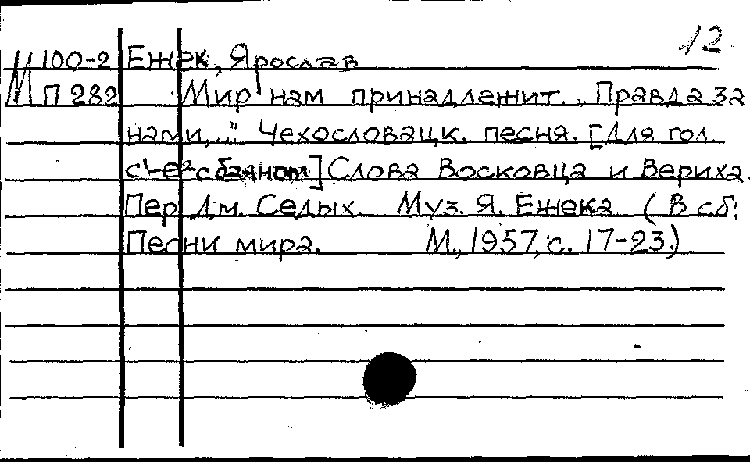 12
М 100-2 Ежек, Ярослав
П 282 Мир нам принадлежит. „Правда за
нами,..." Чехословацк. песня. [Для гол.
с баяном] Слова Восковца и Вериха.
Пер. Дм. Седых. Муз. Я. Ежека (В сб:
Песни мира. М., 1957, с. 17-23.)